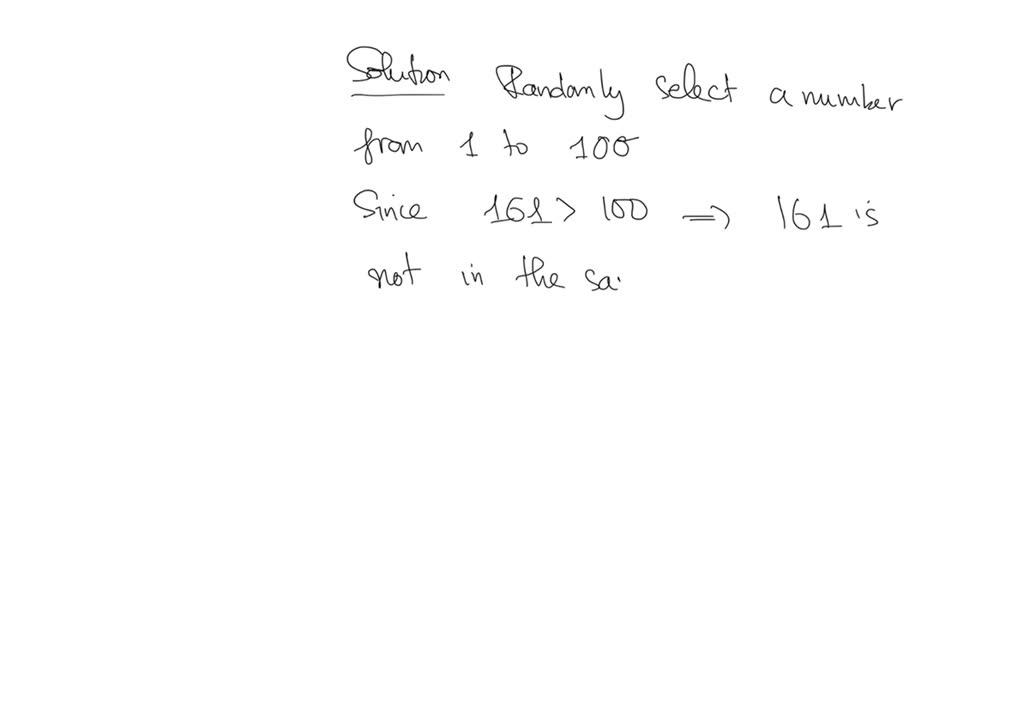 Solution Randomly select a number
from 1 to 100
Since 161 > 100 ⇒ 161 is
not in the sa